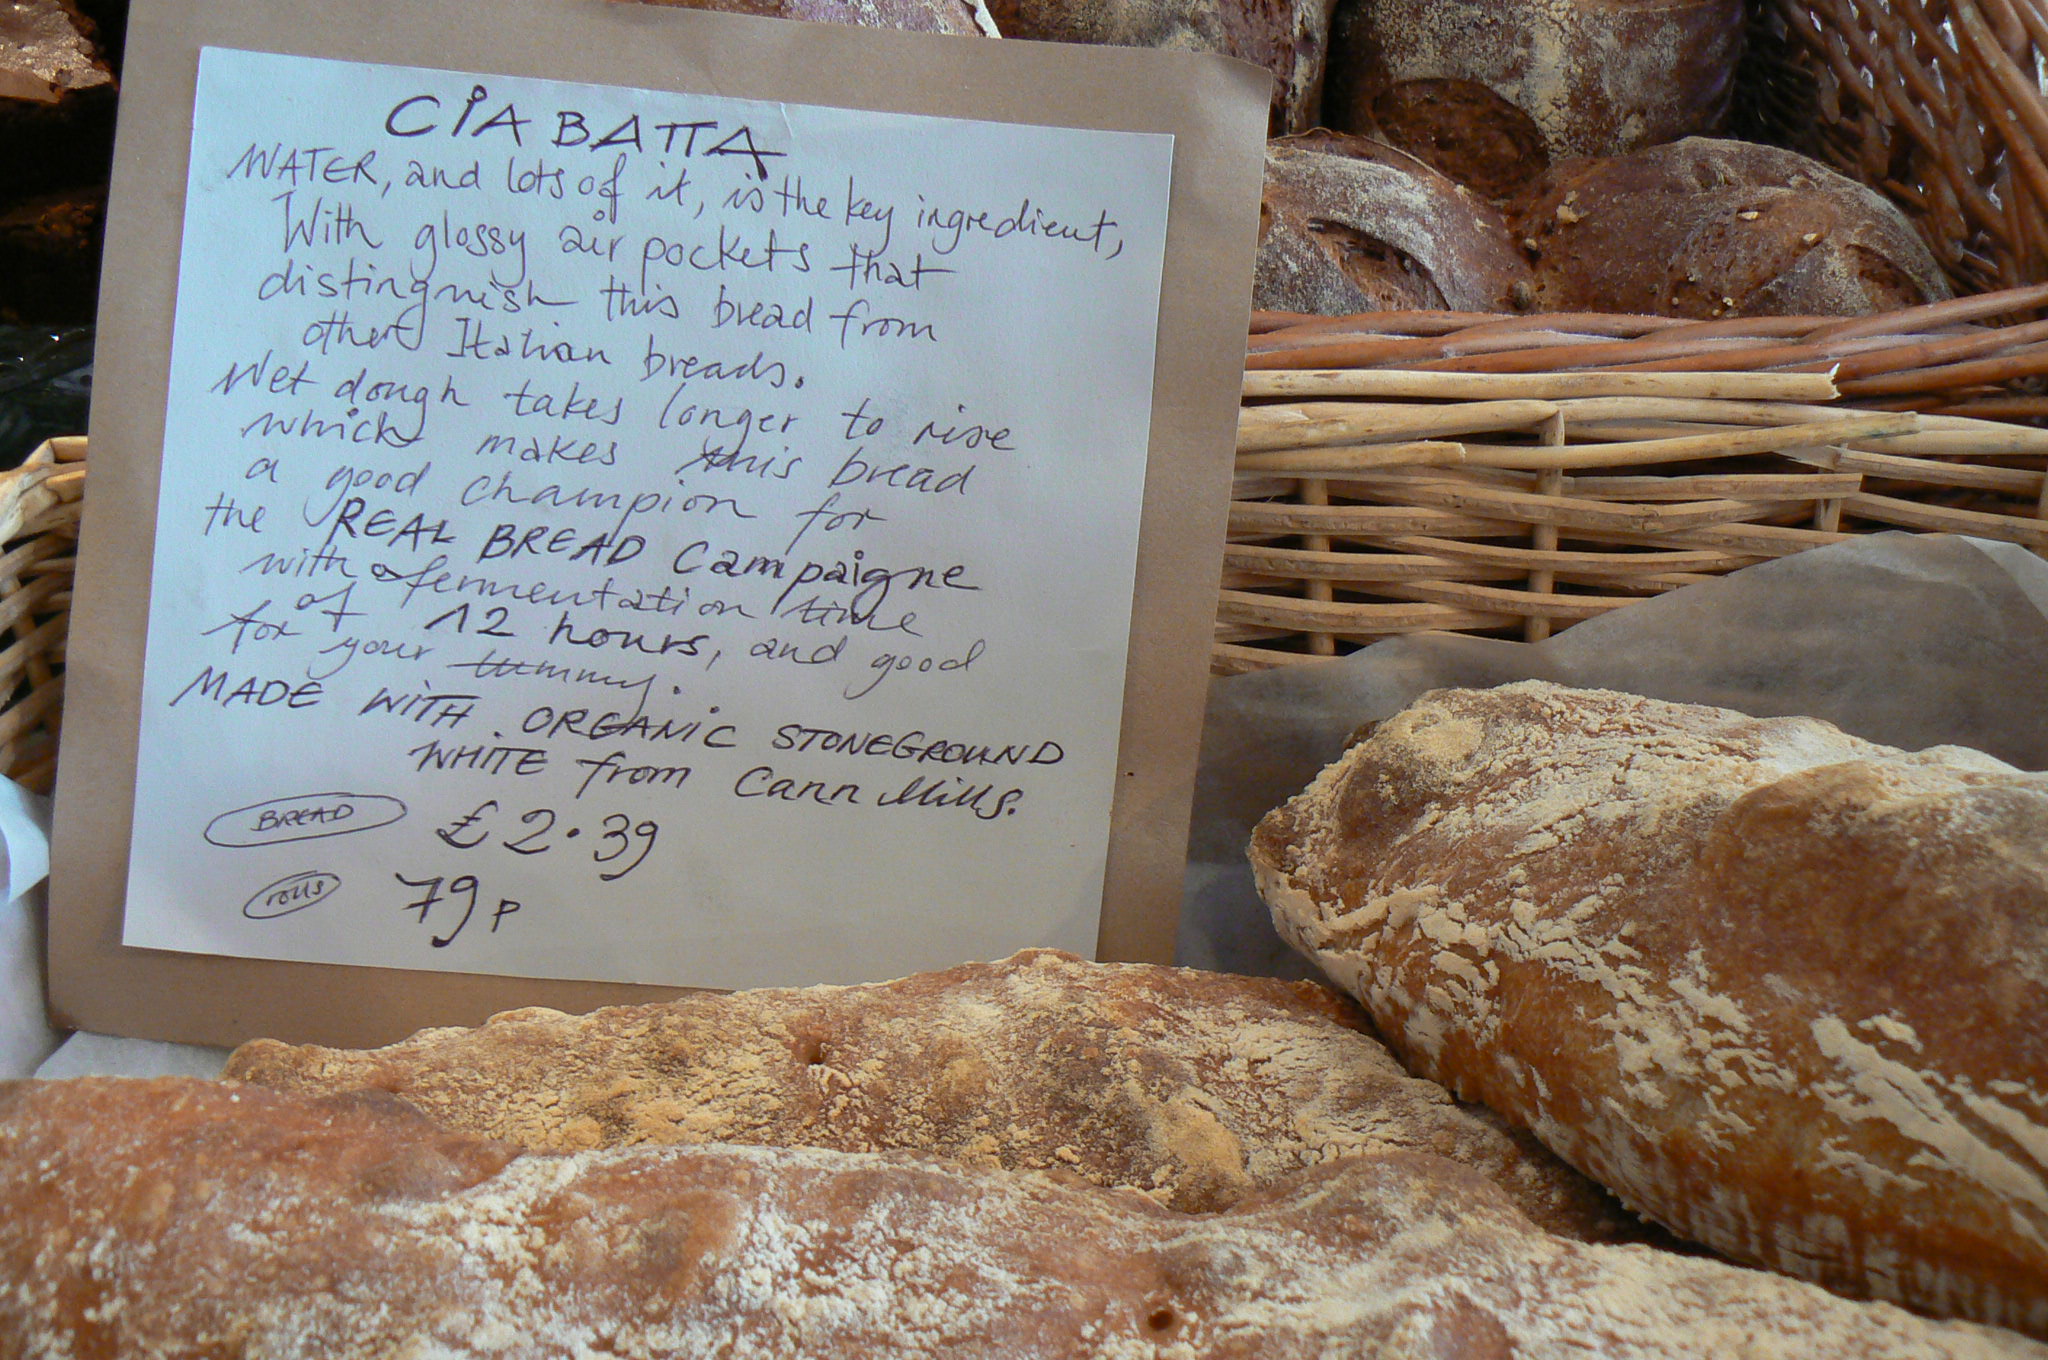 CIABATTA
WATER, and lots of it, is the key ingredient,
With glossy air pockets that
distinguish this bread from
other Italian breads.
Wet dough takes longer to rise
which makes this bread
a good champion for
the REAL BREAD Campaigne
with a fermentation time
of 12 hours, and good
for your tummy.
MADE WITH ORGANIC STONEGROUND
WHITE from Cann Mills.
BREAD £2.39
rolls 79p